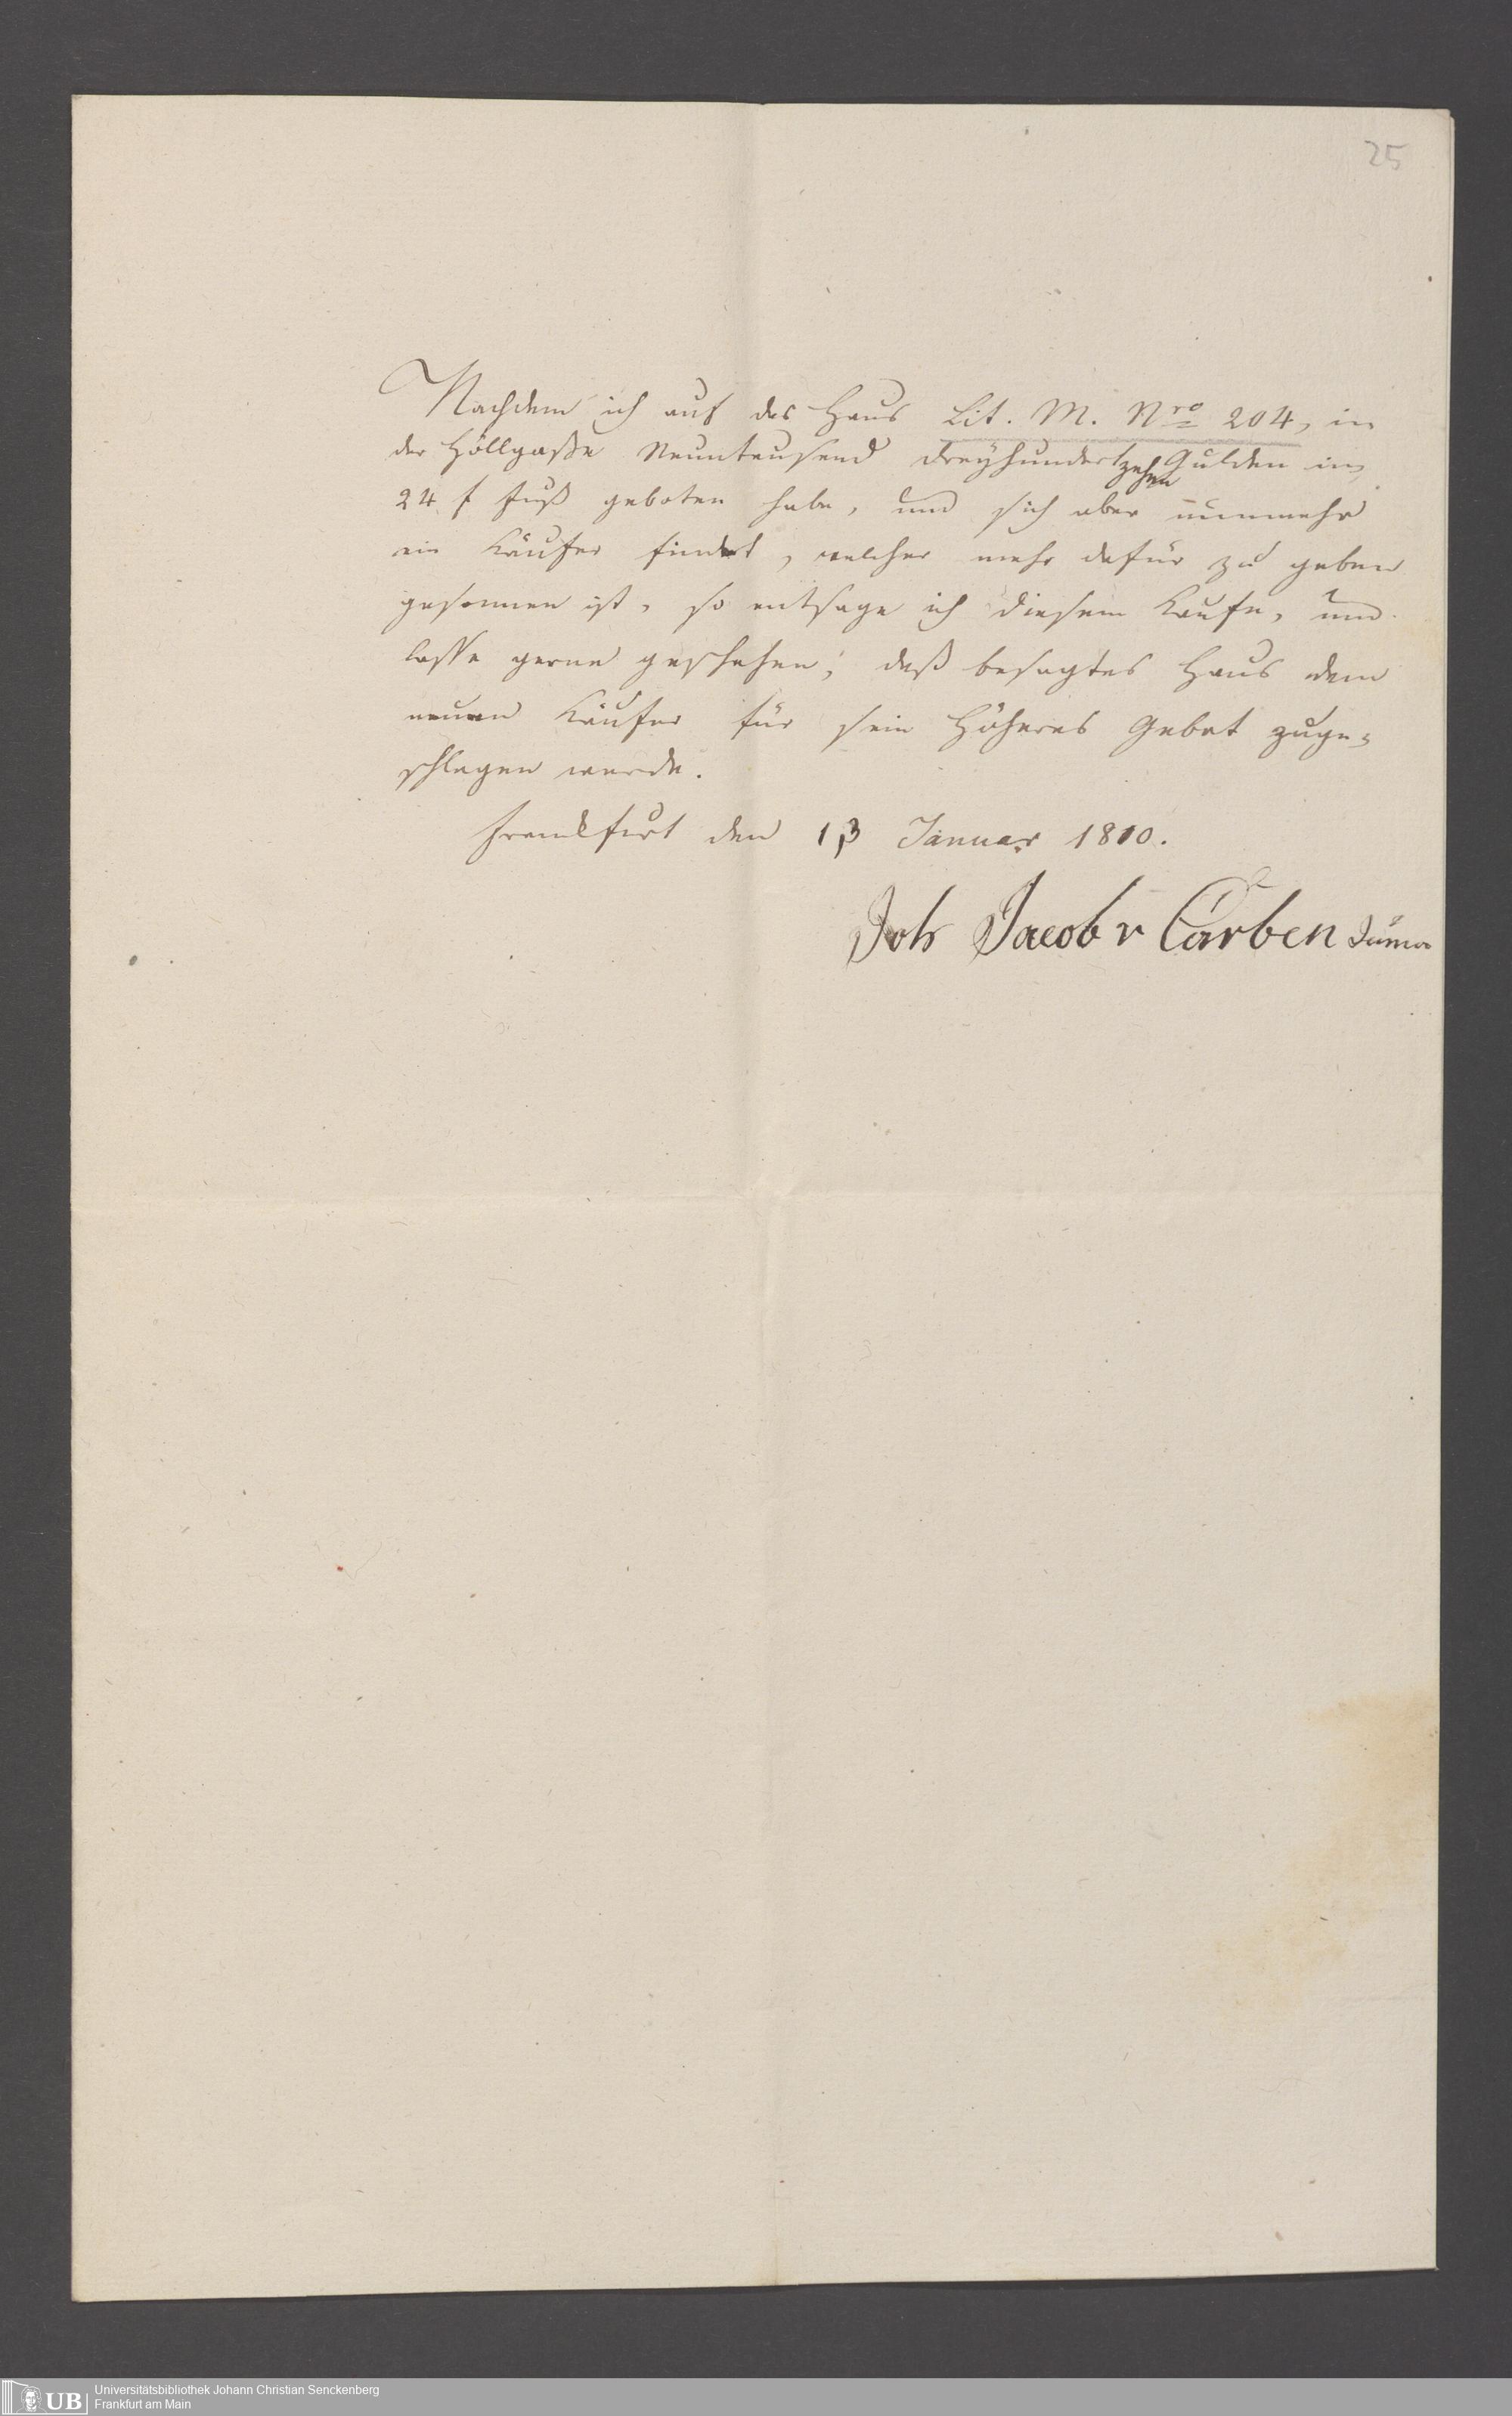 25
Nachdem ich auf das Haus Lit. M. Nro 204, in
der Höllgaße Neuntausend Dreyhundertzehen Gulden im
24 f Fuß geboten habe, und sich aber nunmehr
ein Käufer findet, welcher mehr dafür zu geben
gesonnen ist, so entsage ich diesem Kaufe, und
lasse gerne geschehen, daß besagtes Haus dem
neuen Käufer für sein höheres Gebot zuge-
schlagen werde.
Frankfurt den 13 Januar 1810.
Joh Jacob v Carben Junior
UB Universitätsbibliothek Johann Christian Senckenberg
Frankfurt am Main